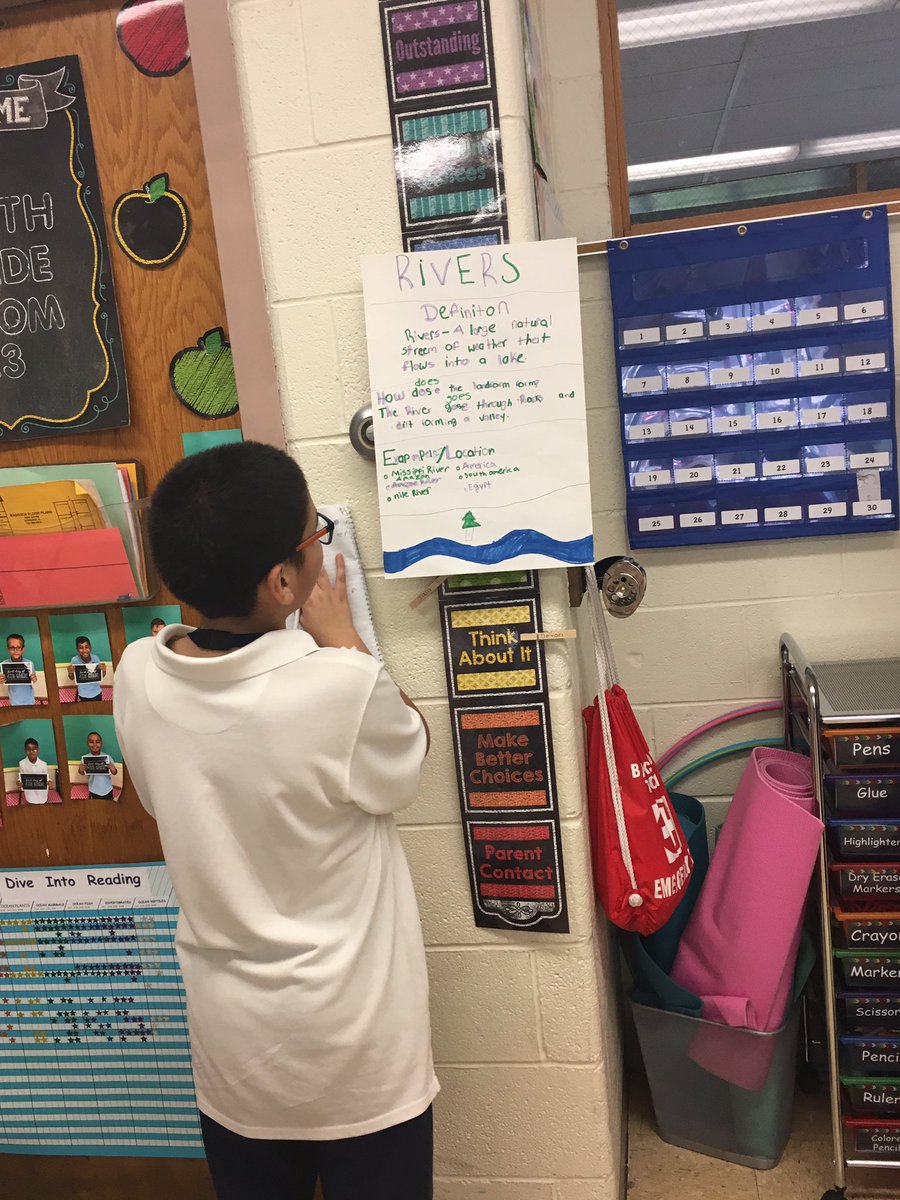 ME
TH
DE
OM
3
Outstanding
Choices
RIVERS
Definiton
Rivers- A large natural
stream of weather that
flows into a lake.
does
How dose the landform form?
goes
The River gose through Rocks and
dirt forming a valley.
Exampals/Location
Missippi River
America
Amazon
south america
Amazon River
nile River
Egypt
1 2 3 4 5 6
7 8 9 10 11 12
13 14 15 16 17 18
19 20 21 22 23 24
25 26 27 28 29 30
Think
About It
Devon
Make
Better
Choices
Parent
Contact
EMER
Dive Into Reading
OCEAN PLANTS
OCEAN MAMMALS
OCEAN FISH
INVERTEBRATES
OCEAN REPTILES
Pens
Glue
Highlighter
Dry Erase
Markers
Crayon
Marker
Scissor
Pencil
Ruler
Colored
Pencil